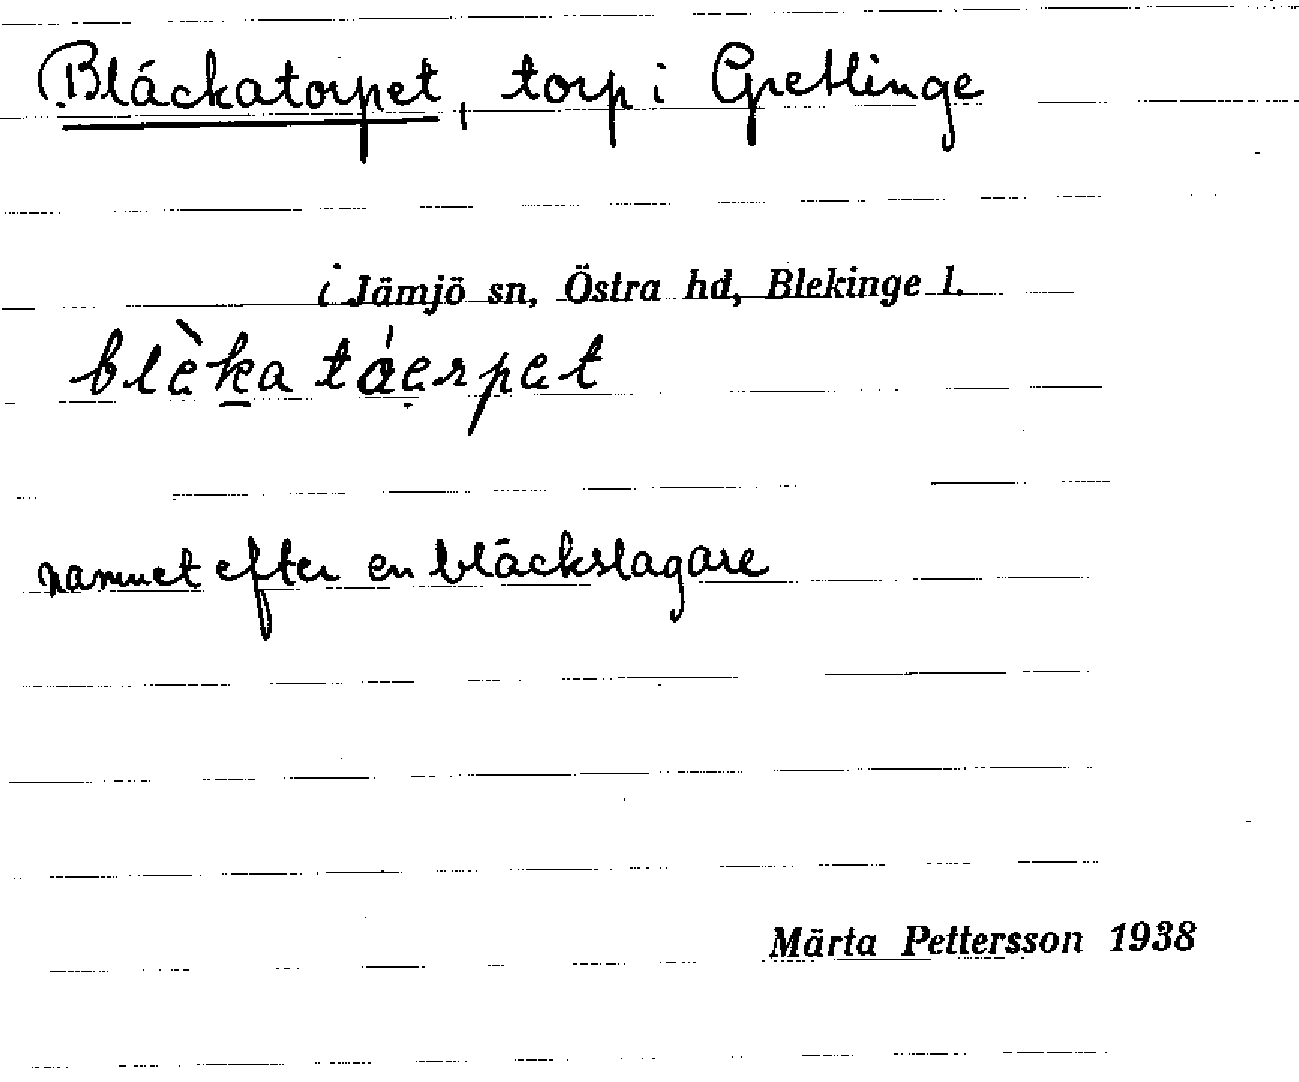 Bläckatorpet, torp i Grettinge
i Jämjö sn, Östra hd, Blekinge l.
blèka táerpet
namnet efter en bläckslagare
Märta Pettersson 1938